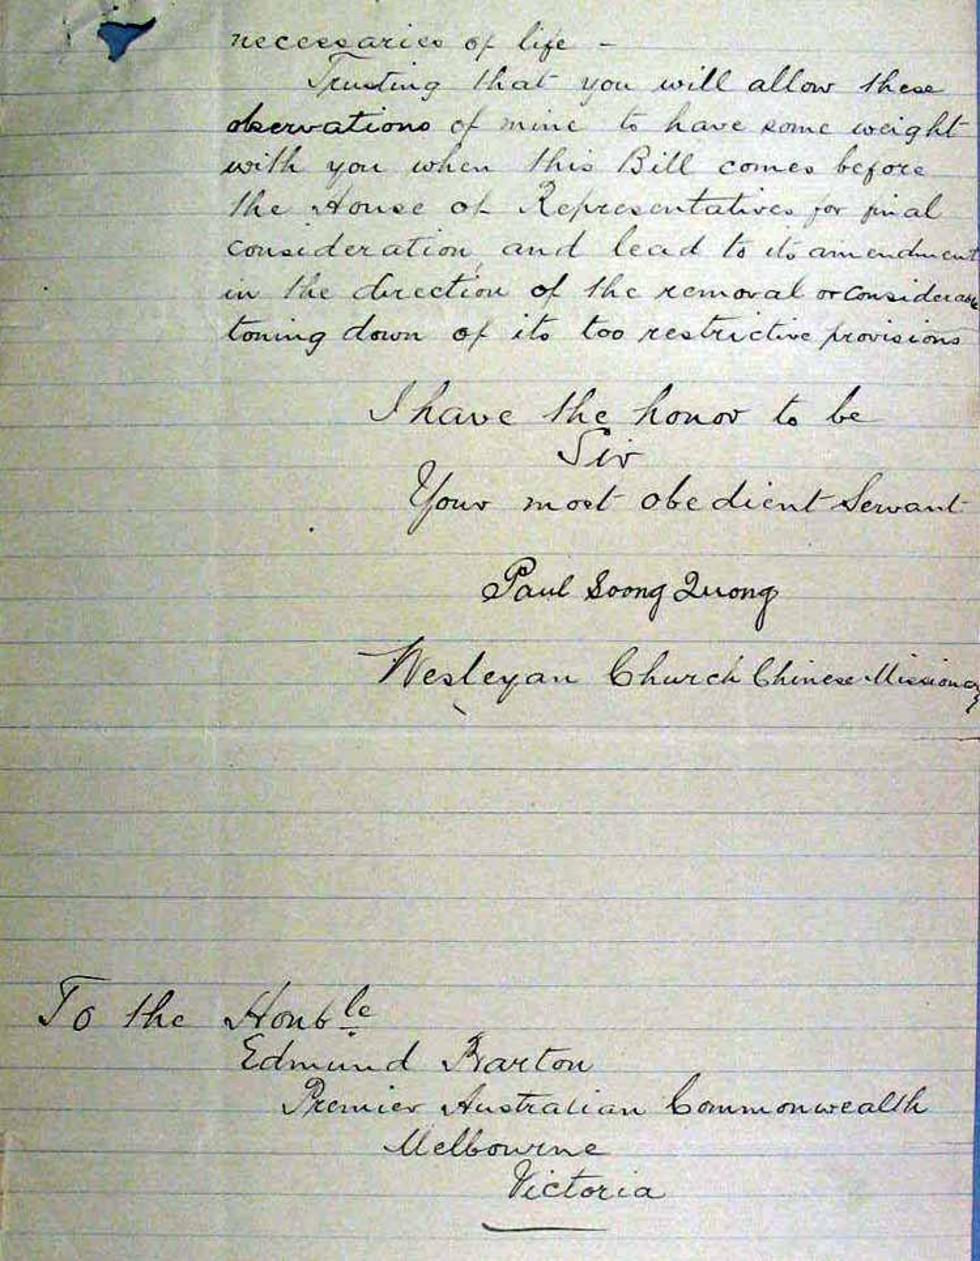 necessaries of life –
Trusting that you will allow these
observations of mine to have some weight
with you when this Bill comes before
the House of Representatives for final
consideration, and lead to its amendment
in the direction of the removal or considerable
toning down of its too restrictive provisions
I have the honor to be
Sir
Your most obedient Servant
Paul Soong Quong
Wesleyan Church Chinese Missionary
To the Honble
Edmund Barton
Premier Australian Commonwealth
Melbourne
Victoria